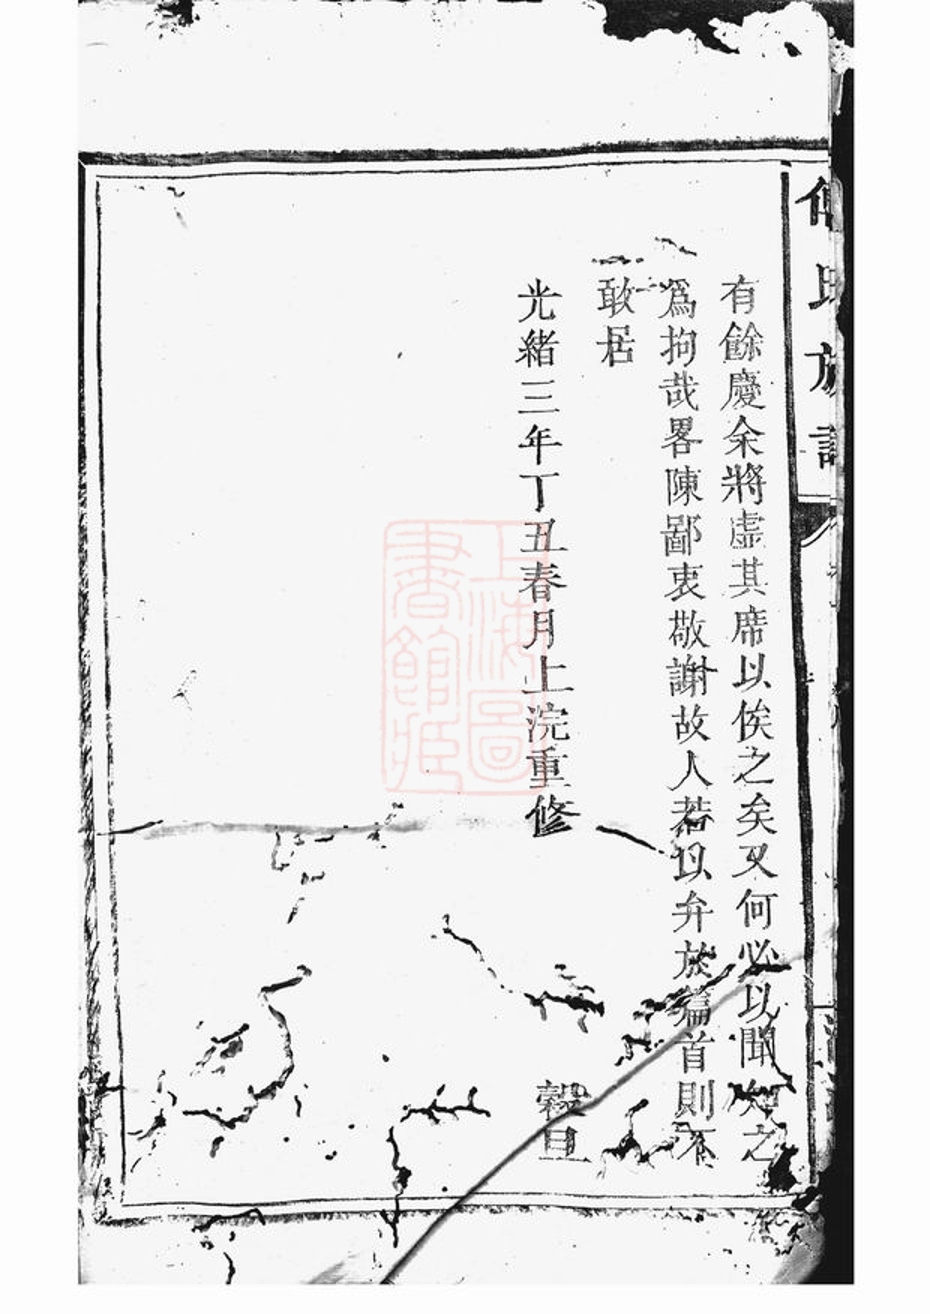 氏族譜
有餘慶余將虛其席以俟之矣又何必以聞知之
為拘哉畧陳鄙衷敬謝故人若以弁於篇首則不
敢居
光緒三年丁丑春月上浣重修
穀旦
上海圖書館藏